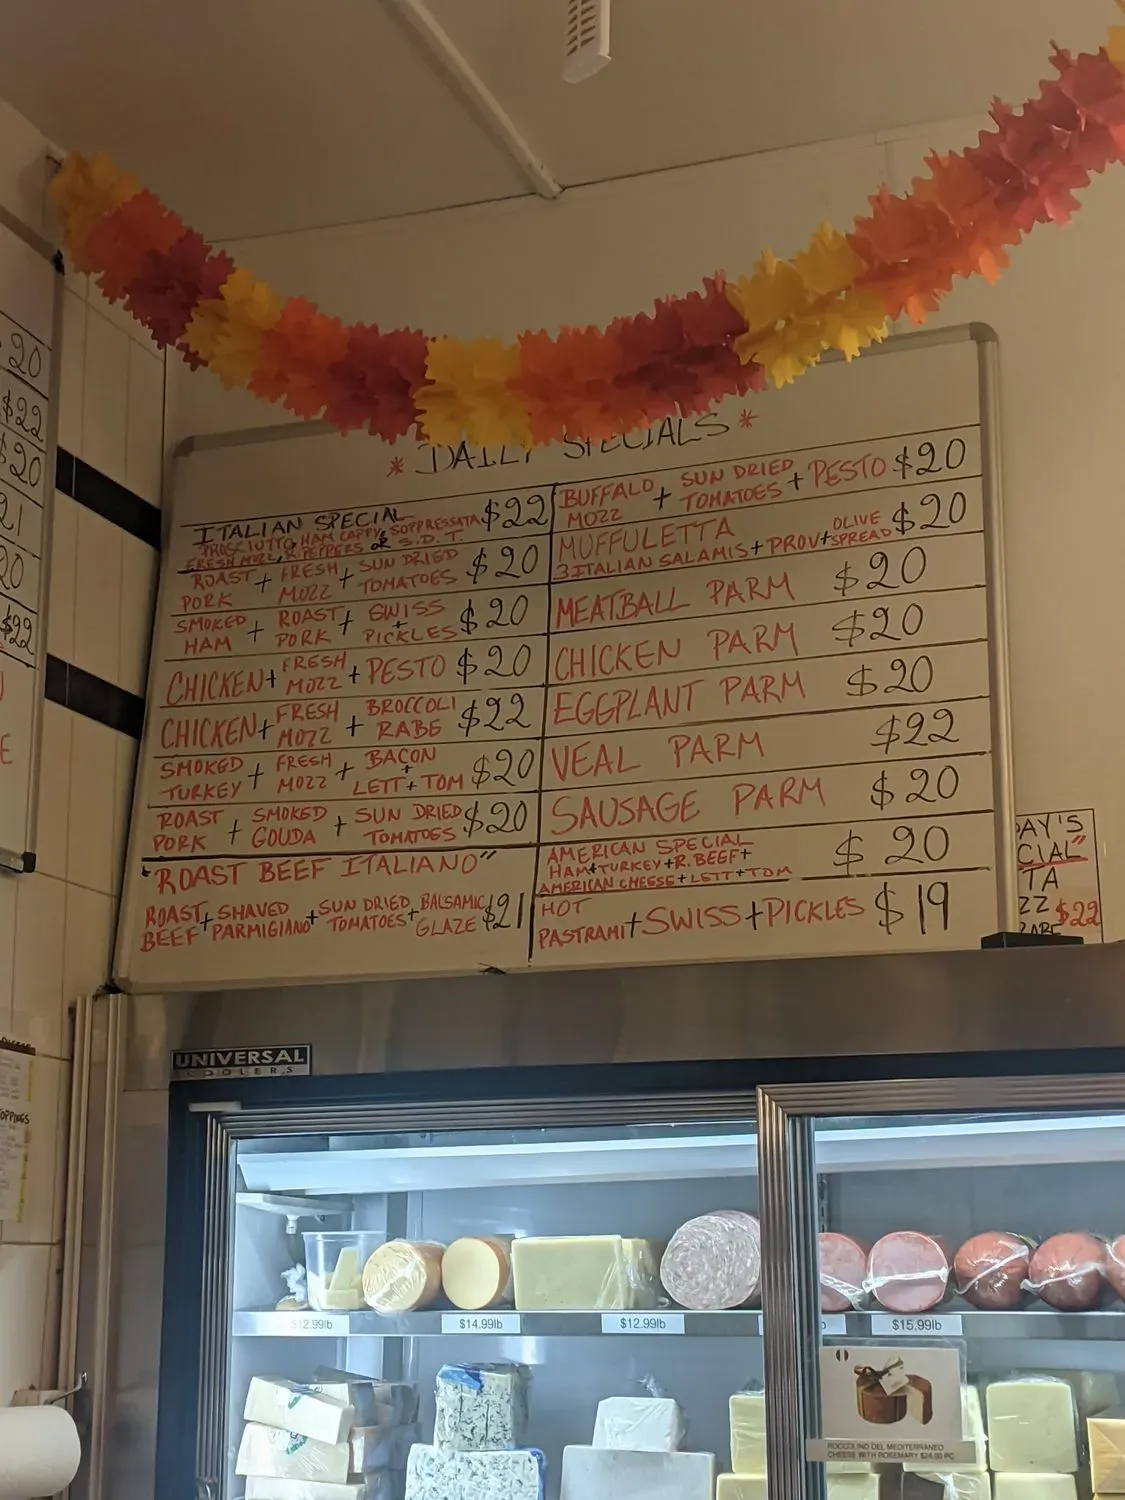 * DAILY SPECIALS *
ITALIAN SPECIAL $22
PROSCIUTTO, HAM CAPPY, SOPPRESSATA
FRESH MOZZ, R. PEPPERS OR S.D.T.
ROAST PORK + FRESH MOZZ + SUN DRIED TOMATOES $20
SMOKED HAM + ROAST PORK + SWISS + PICKLES $20
CHICKEN + FRESH MOZZ + PESTO $20
CHICKEN + FRESH MOZZ + BROCCOLI RABE $22
SMOKED TURKEY + FRESH MOZZ + BACON + LETT + TOM $20
ROAST PORK + SMOKED GOUDA + SUN DRIED TOMATOES $20
"ROAST BEEF ITALIANO"
ROAST BEEF + SHAVED PARMIGIANO + SUN DRIED TOMATOES + BALSAMIC GLAZE $21
BUFFALO MOZZ + SUN DRIED TOMATOES + PESTO $20
MUFFULETTA $20
3 ITALIAN SALAMIS + PROV + OLIVE SPREAD
MEATBALL PARM $20
CHICKEN PARM $20
EGGPLANT PARM $20
VEAL PARM $22
SAUSAGE PARM $20
AMERICAN SPECIAL $20
HAM + TURKEY + R. BEEF +
AMERICAN CHEESE + LETT + TOM
HOT PASTRAMI + SWISS + PICKLES $19
20
$22
$20
21
20
$22
E
AY'S
CIAL"
TA
ZZ $22
RABE
UNIVERSAL
COOLERS
OPPINGS
$12.99lb
$14.99lb
$12.99lb
$15.99lb
ROCCOLINO DEL MEDITERRANEO
CHEESE WITH ROSEMARY $24.00 PC